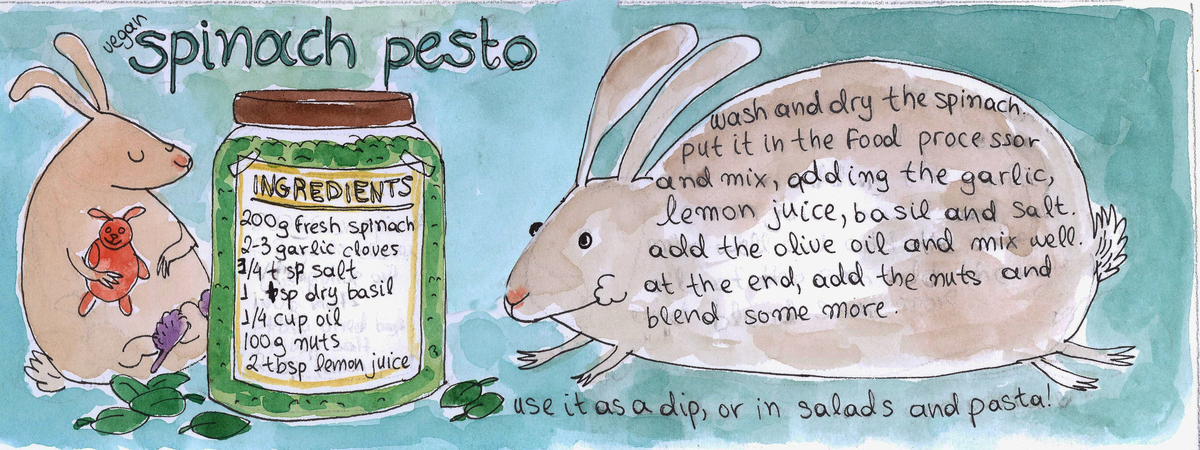 vegan
spinach pesto
INGREDIENTS
200g fresh spinach
2-3 garlic cloves
3/4 tsp salt
1 tsp dry basil
1/4 cup oil
100g nuts
2 tbsp lemon juice
wash and dry the spinach.
put it in the food processor
and mix, adding the garlic,
lemon juice, basil and salt.
add the olive oil and mix well.
at the end, add the nuts and
blend some more.
use it as a dip, or in salads and pasta!